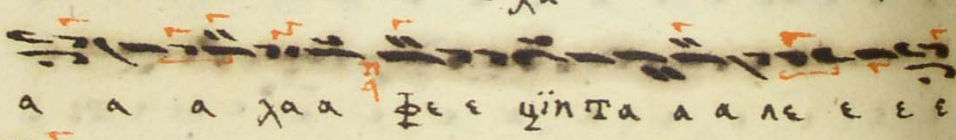 α α α χα α φε ε ψϊπ τα α α λε ε ε ε